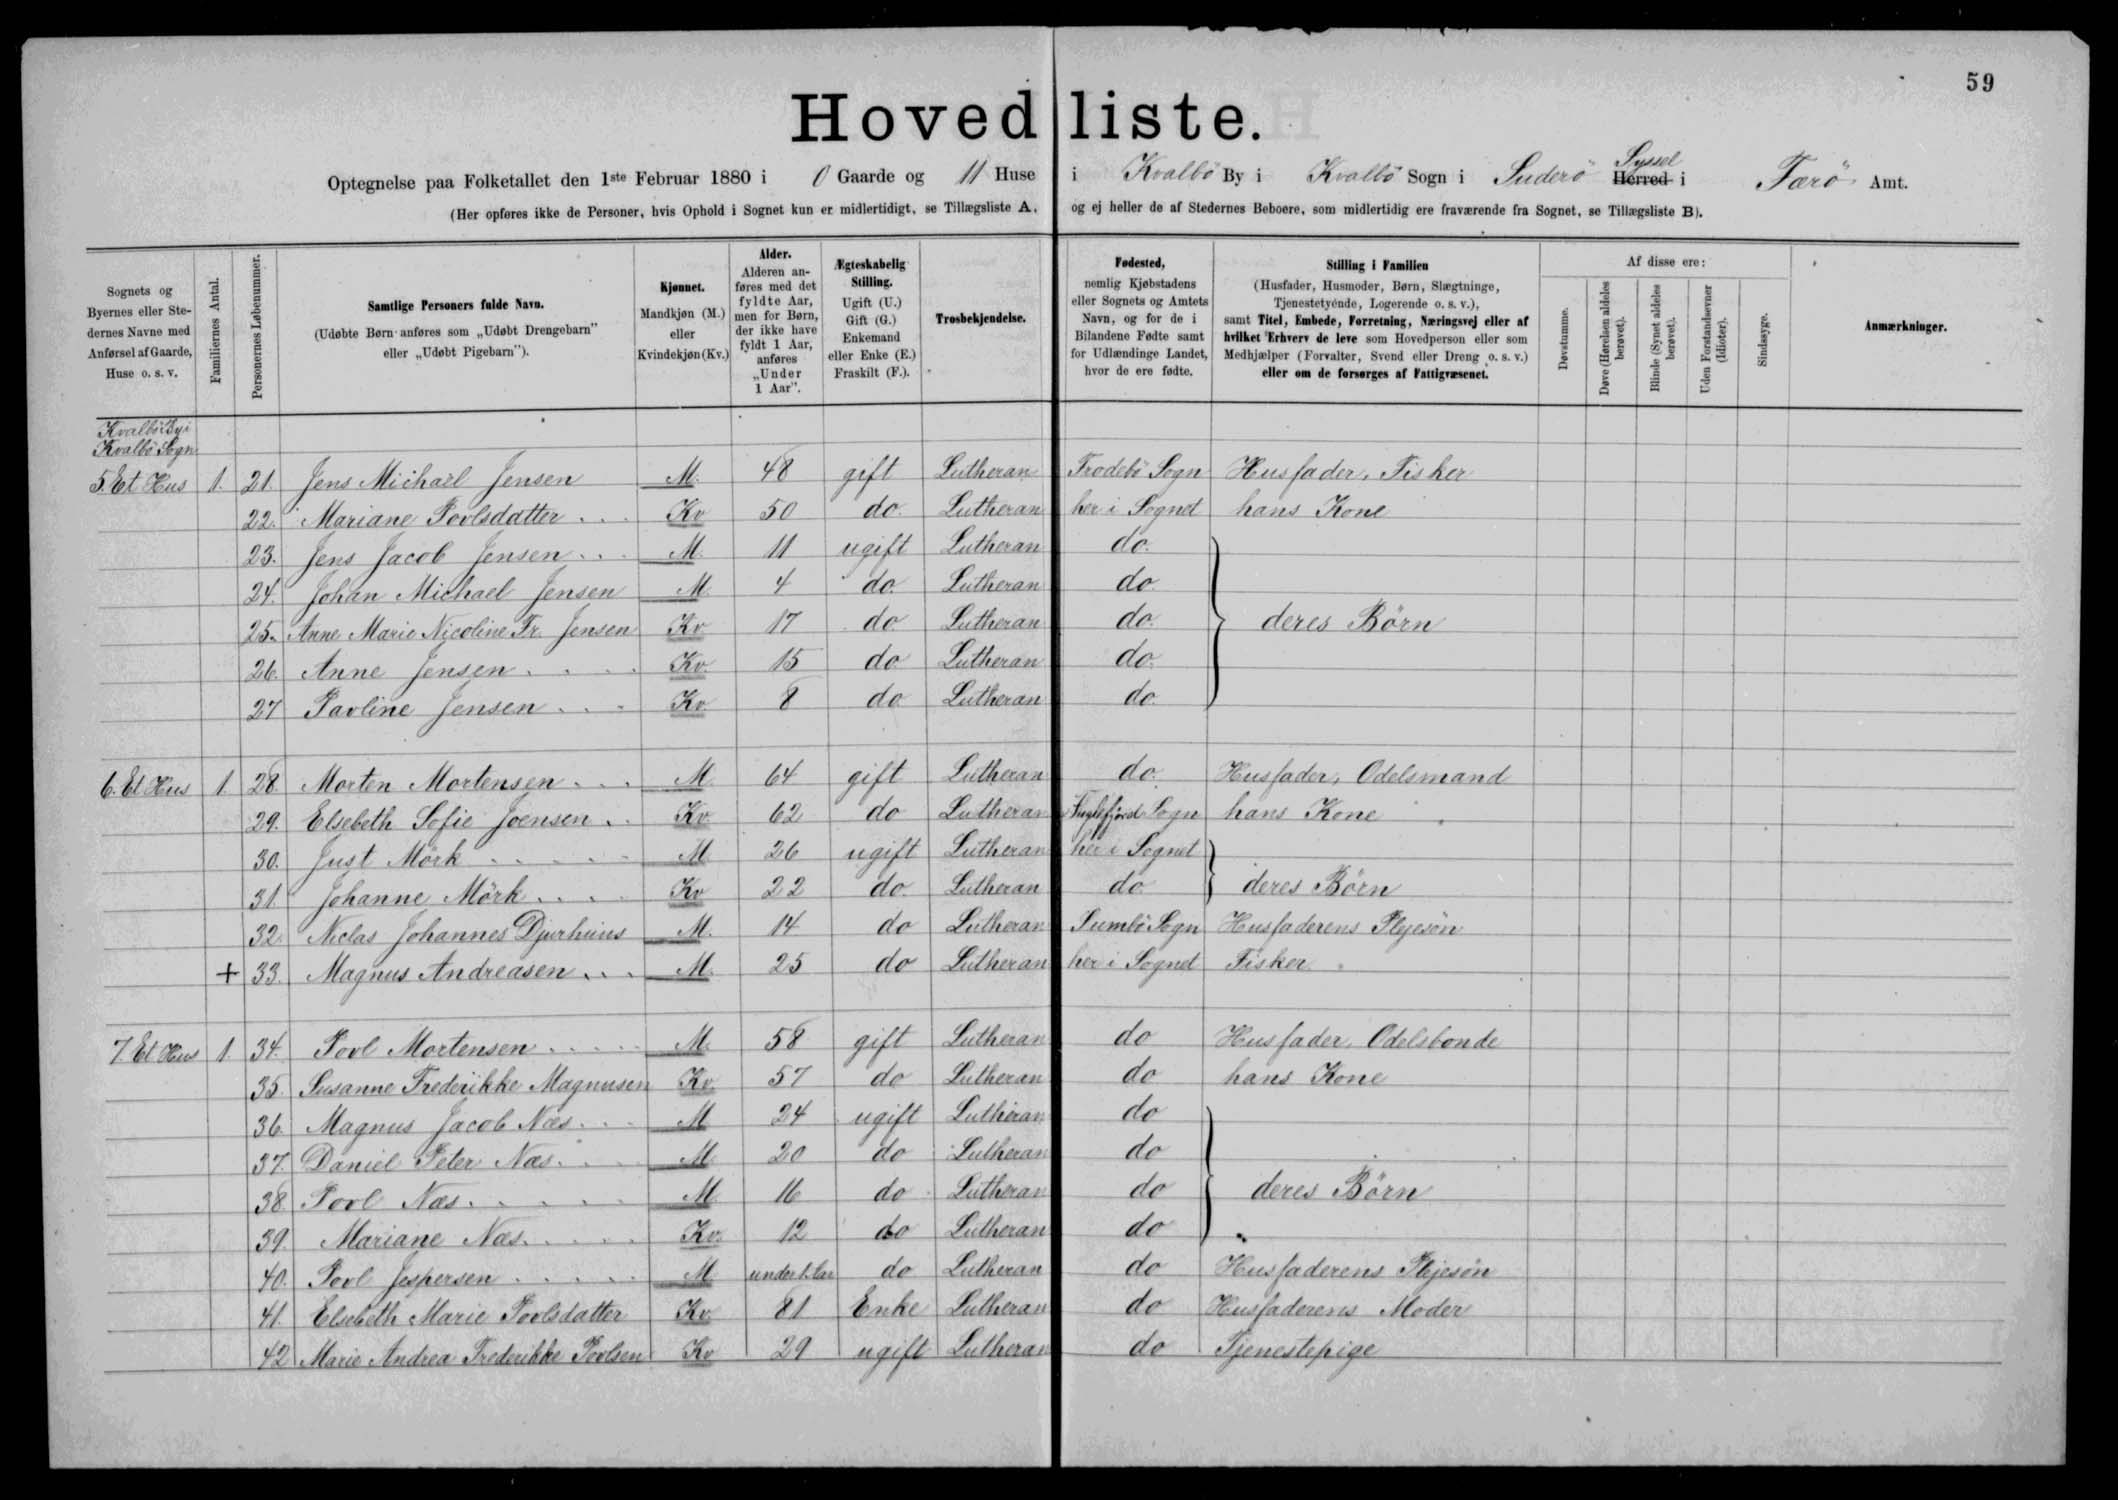 59
Hovedliste.
Optegnelse paa Folketallet den 1ste Februar 1880 i 0 Gaarde og 11 Huse i Kvalbö By i Kvalbö Sogn i Suderö Syssel Herred i Færö Amt.
(Her opføres ikke de Personer, hvis Ophold i Sognet kun er midlertidigt, se Tillægsliste A, og ej heller de af Stedernes Beboere, som midlertidig ere fraværende fra Sognet, se Tillægsliste B).
Sognets og Byernes eller Stedernes Navne med Anførsel af Gaarde, Huse o. s. v.
Familiernes Antal.
Personernes Løbenummer.
Samtlige Personers fulde Navn.
(Udøbte Børn anføres som „Udøbt Drengebarn” eller „Udøbt Pigebarn”).
Kjønnet.
Mandkjøn (M.) eller Kvindekjøn (Kv.)
Alder.
Alderen anføres med det fyldte Aar, men for Børn, der ikke have fyldt 1 Aar, anføres „Under 1 Aar”.
Ægteskabelig Stilling.
Ugift (U.) Gift (G.) Enkemand eller Enke (E.) Fraskilt (F.).
Trosbekjendelse.
Fødested,
nemlig Kjøbstadens eller Sognets og Amtets Navn, og for de i Bilandene Fødte samt for Udlændinge Landet, hvor de ere fødte.
Stilling i Familien
(Husfader, Husmoder, Børn, Slægtninge, Tjenestetyende, Logerende o. s. v.),
samt Titel, Embede, Forretning, Næringsvej eller af hvilket Erhverv de leve som Hovedperson eller som Medhjælper (Forvalter, Svend eller Dreng o. s. v.) eller om de forsørges af Fattigvæsenet.
Af disse ere:
Døvstumme.
Døve (Hørelsen aldeles berøvet).
Blinde (Synet aldeles berøvet).
Uden Forstandsevner (Idioter).
Sindssyge.
Anmærkninger.
Kvalbö By i
Kvalbö Sogn
5. Et Hus 1. 21. Jens Michael Jensen M. 48 gift Lutheran Frodebö Sogn Husfader, Fisker
22. Mariane Povlsdatter Kv 50 do. Lutheran her i Sognet hans Kone
23. Jens Jacob Jensen M. 11 ugift Lutheran do.
24. Johan Michael Jensen M. 4 do. Lutheran do.
25. Anne Marie Nicoline Fr. Jensen Kv 17 do Lutheran do. deres Børn
26. Anne Jensen Kv. 15 do Lutheran do.
27 Pavline Jensen Kv. 8 do Lutheran do.
6. Et Hus 1. 28. Morten Mortensen M. 64 gift Lutheran do. Husfader, Odelsmand
29. Elsebeth Sofie Joensen Kv 62 do Lutheran Fuglefjord Sogn hans Kone
30. Just Mörk M 26 ugift Lutheran her i Sognet
31. Johanne Mörk Kv 22 do. Lutheran do. deres Børn
32. Niclas Johannes Djurhuus M. 14 do Lutheran Sumbö Sogn Husfaderens Plejesön
+ 33. Magnus Andreasen M. 25 do Lutheran her i Sognet Fisker
7 Et Hus 1. 34. Povl Mortensen M. 58 gift Lutheran do Husfader, Odelsbonde
35. Susanne Frederikke Magnusen Kv. 57 do Lutheran do hans Kone
36. Magnus Jacob Næs M 24 ugift Lutheran do
37. Daniel Peter Næs M 20 do Lutheran do
38. Povl Næs M. 16 do Lutheran do deres Børn
39. Mariane Næs Kv. 12 do Lutheran do
40. Povl Jespersen M under 1 Aar do Lutheran do Husfaderens Plejesön
41. Elsebeth Marie Povlsdatter Kv. 81 Enke Lutheran do Husfaderens Moder
42 Marie Andrea Frederikke Povlsen Kv 29 ugift Lutheran do Tjenestepige